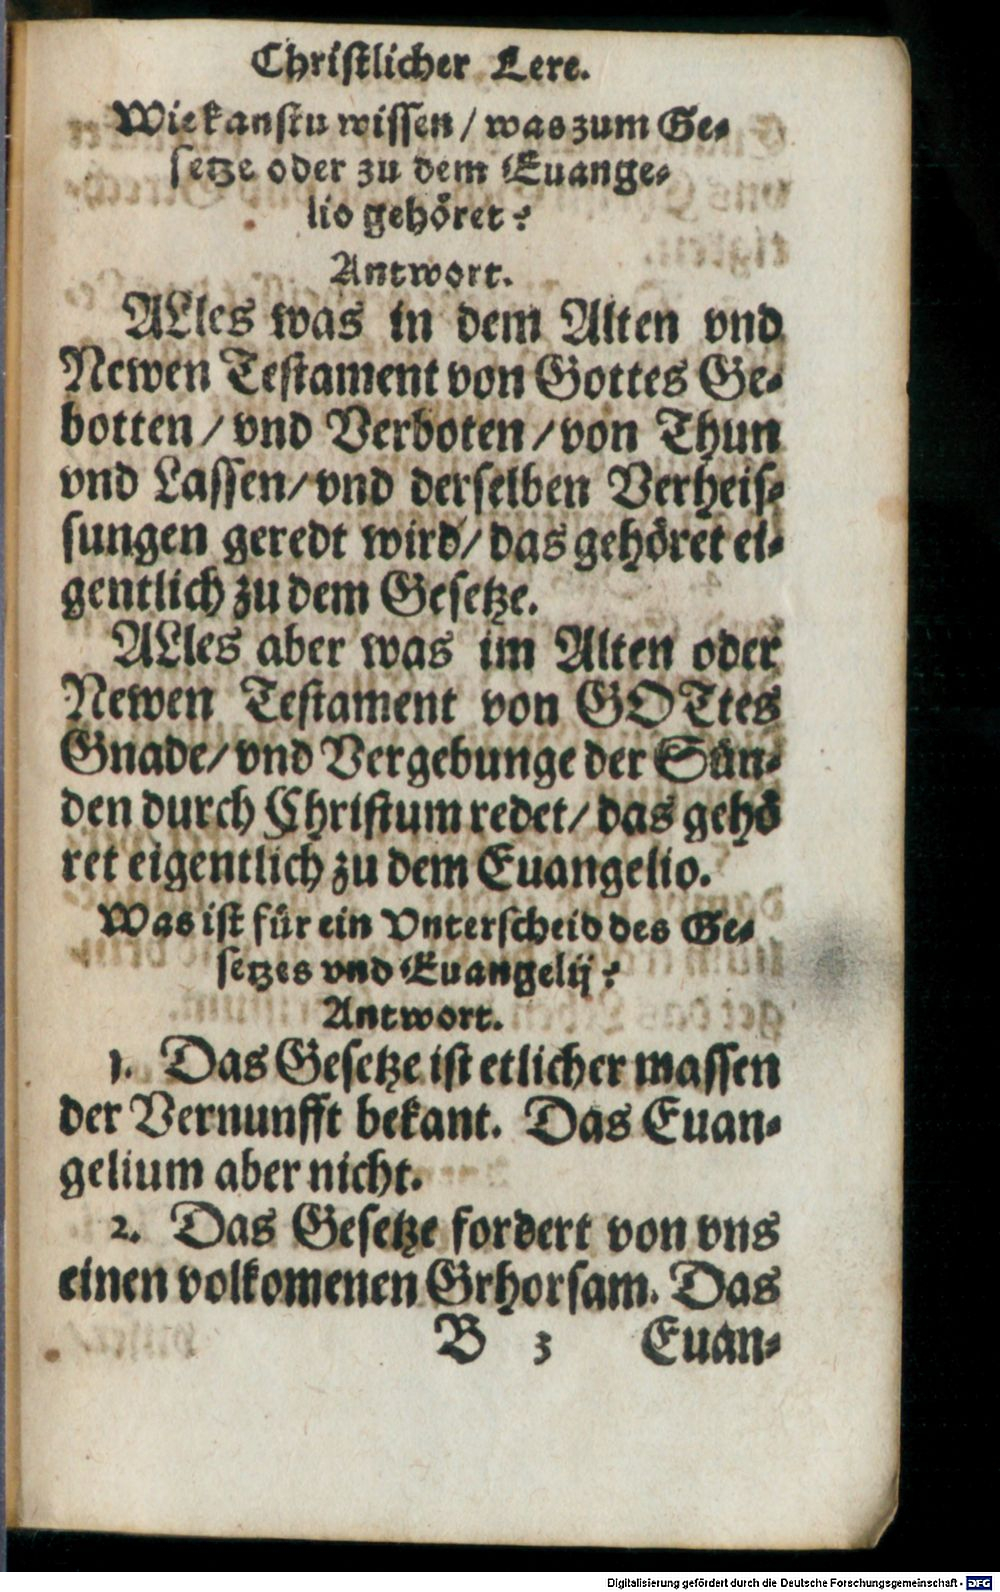 Christlicher Lere.
Wie kanstu wissen / was zum Ge⸗
setze oder zu dem Euange⸗
lio gehöret?
Antwort.
ALles was in dem Alten vnd
Newen Testament von Gottes Ge⸗
botten / vnd Verboten / von Thun
vnd Lassen / vnd derselben Verheis⸗
sungen geredt wird / das gehöret ei⸗
gentlich zu dem Gesetze.
ALles aber was im Alten oder
Newen Testament von GOTtes
Gnade / vnd Vergebunge der Sün⸗
den durch Christum redet / das gehö
ret eigentlich zu dem Euangelio.
Was ist für ein Vnterscheid des Ge⸗
setzes vnd Euangelij?
Antwort.
1. Das Gesetze ist etlicher massen
der Vernunfft bekant. Das Euan⸗
gelium aber nicht.
2. Das Gesetze fordert von vns
einen volkomenen Grhorsam. Das
B 3 Euan⸗
Digitalisierung gefördert durch die Deutsche Forschungsgemeinschaft - DFG